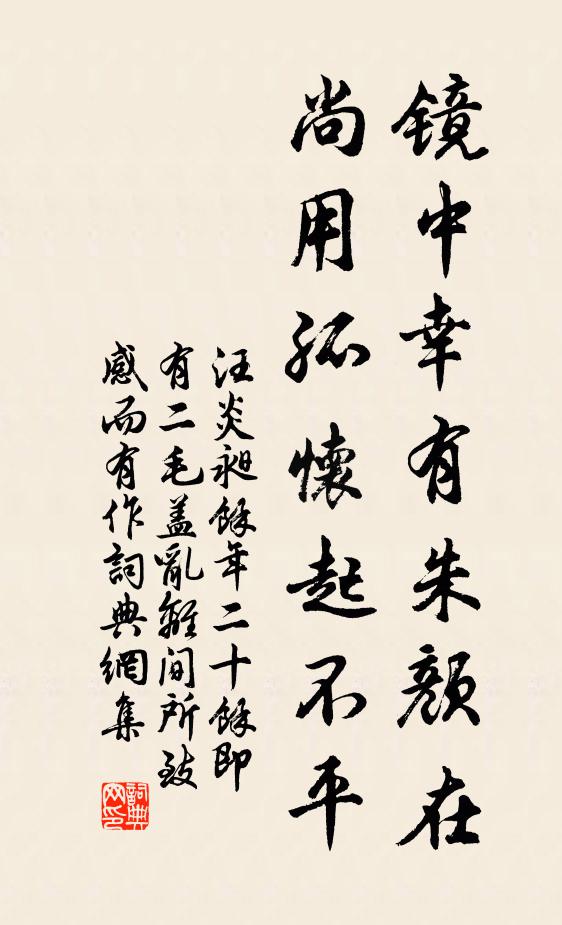 镜中幸有朱颜在
尚用孤懷起不平
汪炎昶餘年二十餘即
有二毛盖亂離间所致
感而有作詞典網集
詞典网印